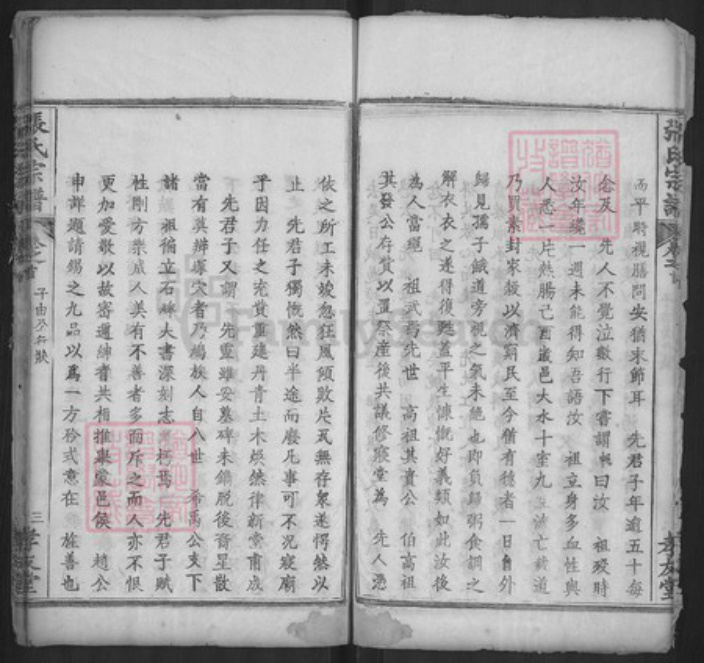 張氏宗譜
卷之首
孝友堂
而平時視膳問安猶末節耳 先君子年逾五十每
念及 先人不覺泣數行下嘗謂 曰汝 祖歿時
汝年纔一週未能得知吾語汝 祖立身多血性與
人悉一片熱腸己酉歲邑大水十室九 亡載道
乃買素封家穀以濟窮民至今猶有德者一日自外
歸見孺子餓道旁視之氣未絕也即負歸粥食調之
解衣衣之遂得復甦蓋平生慷慨好義類如此汝後
為人當繩 祖武焉先世 高祖其貴公 伯高祖
其發公存貲以置祭產後共議修寢堂為 先人憑
依之所工未竣忽狂風傾敗片瓦無存衆遂愕然以
止 先君子獨慨然曰半途而廢凡事可不況寢廟
乎因力任之充貲重建丹青土木煥然律新棠甫成
先君子又謂 先靈雖妥墓碑未鐫脫後裔星散
當有莫辨塚穴者乃為族人自八世 希禹公支下
諸 祖徧立石碑大書深刻志 朽焉 先君子賦
性剛方樂成人美有不善者多面斥之而人亦不恨
更加愛敬以故寄邇紳耆共相推舉蒙邑侯 趙公
申詳題請錫之九品以為一方矜式意在 旌善也
張氏宗譜
卷之首
子由公名狀
三
孝友堂
FamilySearch